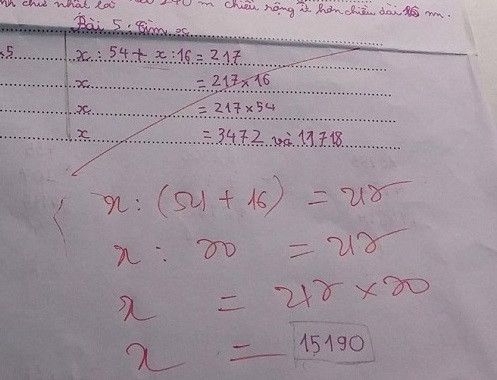 nh chữ nhật là 240 m chiều rộng ít hơn chiều dài m.
Bài 5. Tìm x
.5
x : 54 + x : 16 = 217
x = 217 x 16
x = 217 x 54
x = 3472 và 11718
x : (54 + 16) = 217
x : 70 = 217
x = 217 x 70
x = 15190